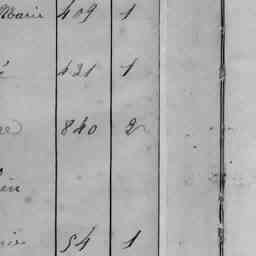 Marie 409 1
é 421 1
840 2
54 1